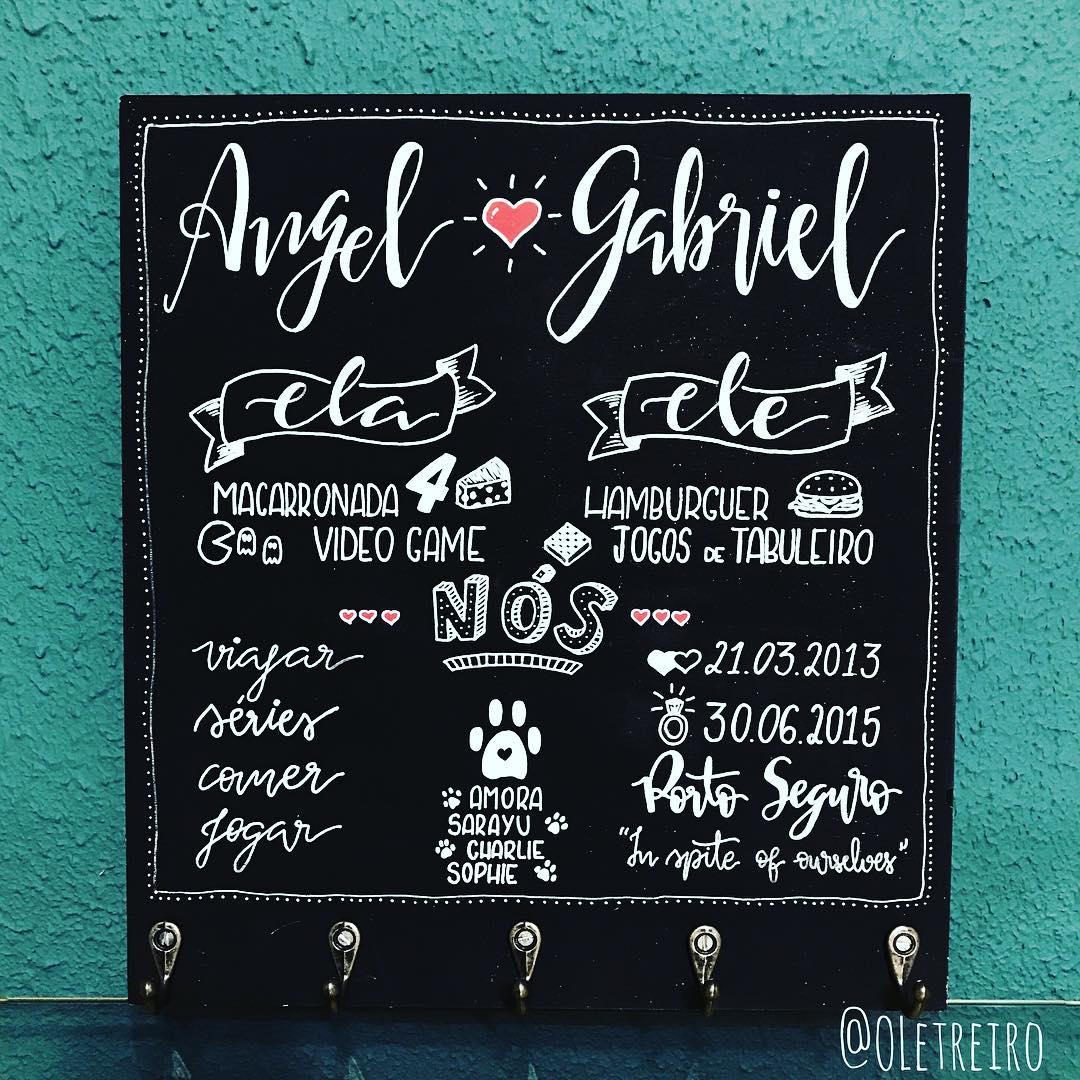 Angel Gabriel
ela
MACARRONADA 4
VIDEO GAME
ele
HAMBURGUER
JOGOS DE TABULEIRO
NÓS
viajar
séries
comer
jogar
AMORA
SARAYU
CHARLIE
SOPHIE
21.03.2013
30.06.2015
Porto Seguro
"In spite of ourselves"
@OLETREIRO